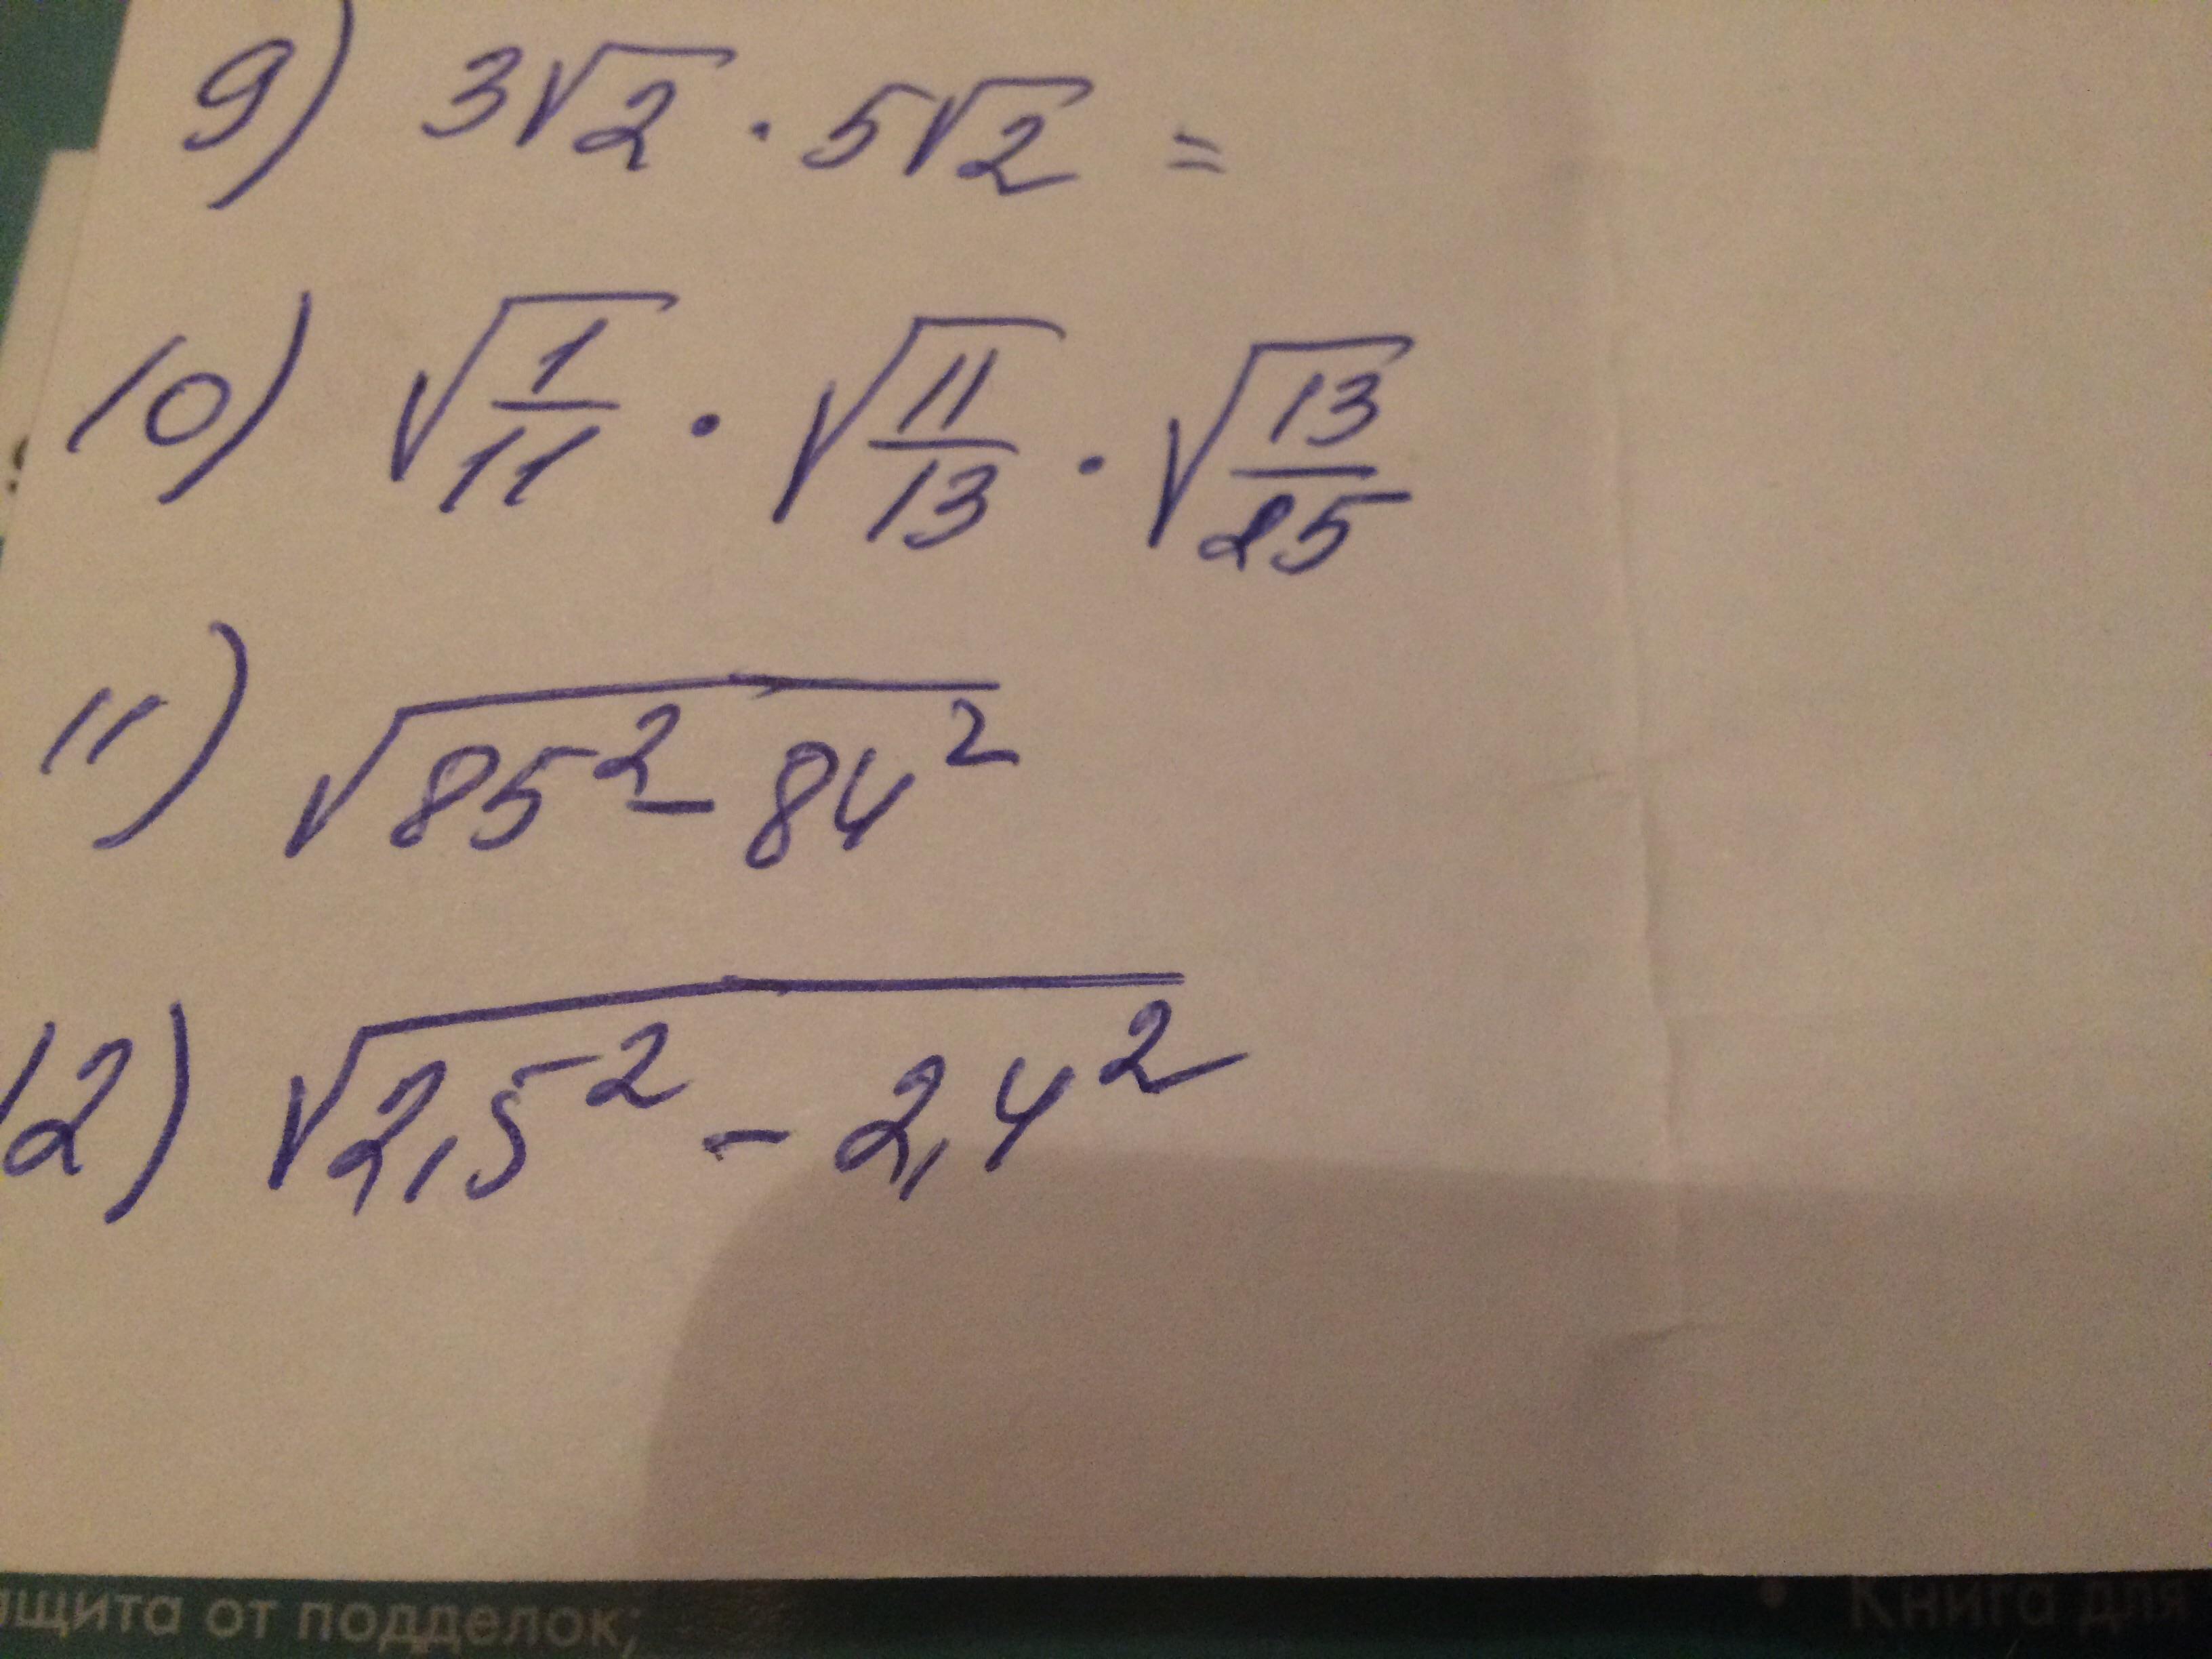 9) 3√2 · 5√2 =
10) √(1/11) · √(11/13) · √(13/25)
11) √(85² - 84²)
12) √(2,5² - 2,4²)
ащита от подделок;
• Книга для